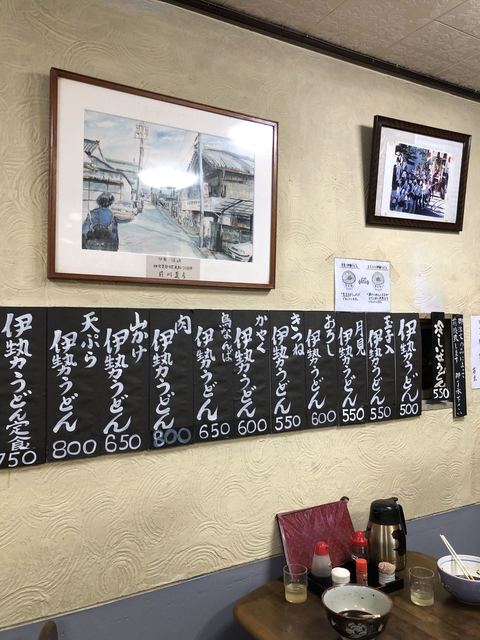 冷しうどん
550
伊勢うどん
500
玉子入
伊勢うどん
550
月見
伊勢うどん
550
おろし
伊勢うどん
600
きつね
伊勢うどん
550
かやく
伊勢うどん
600
鳥なんば
伊勢うどん
650
肉
伊勢うどん
800
山かけ
伊勢うどん
650
天ぷら
伊勢うどん
800
伊勢うどん定食
750